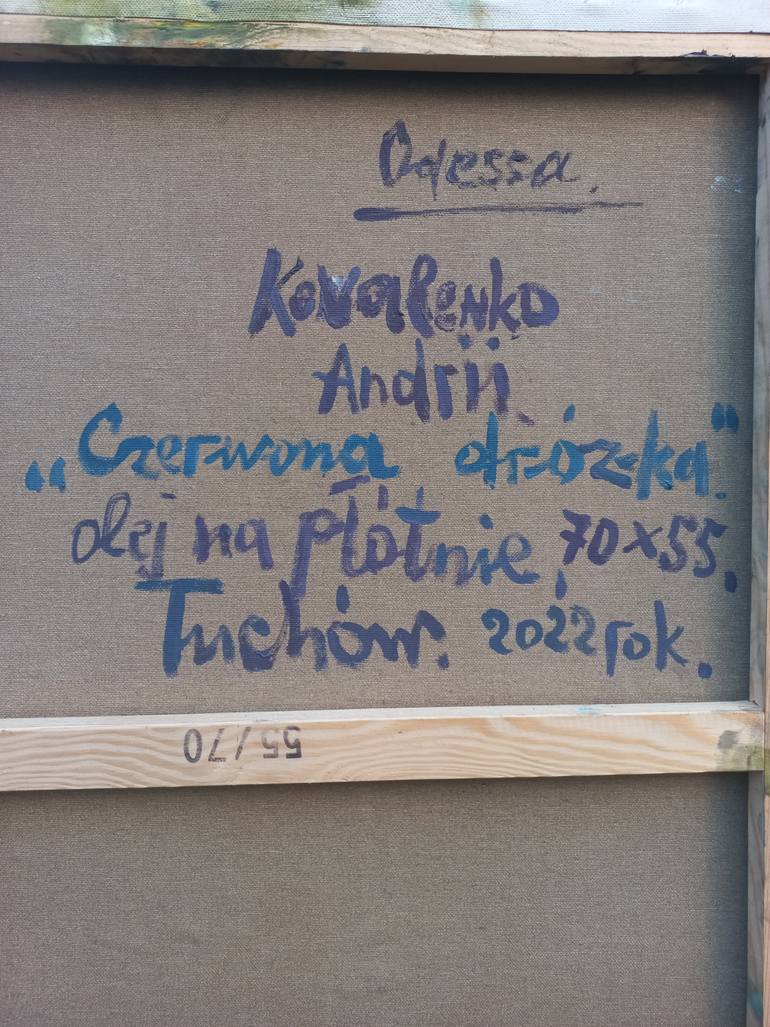 Odessa.
Kovalenko
Andrii
„Czerwona dróżka"
olej na płótnie, 70x55.
Tuchów. 2022 rok.
55/70